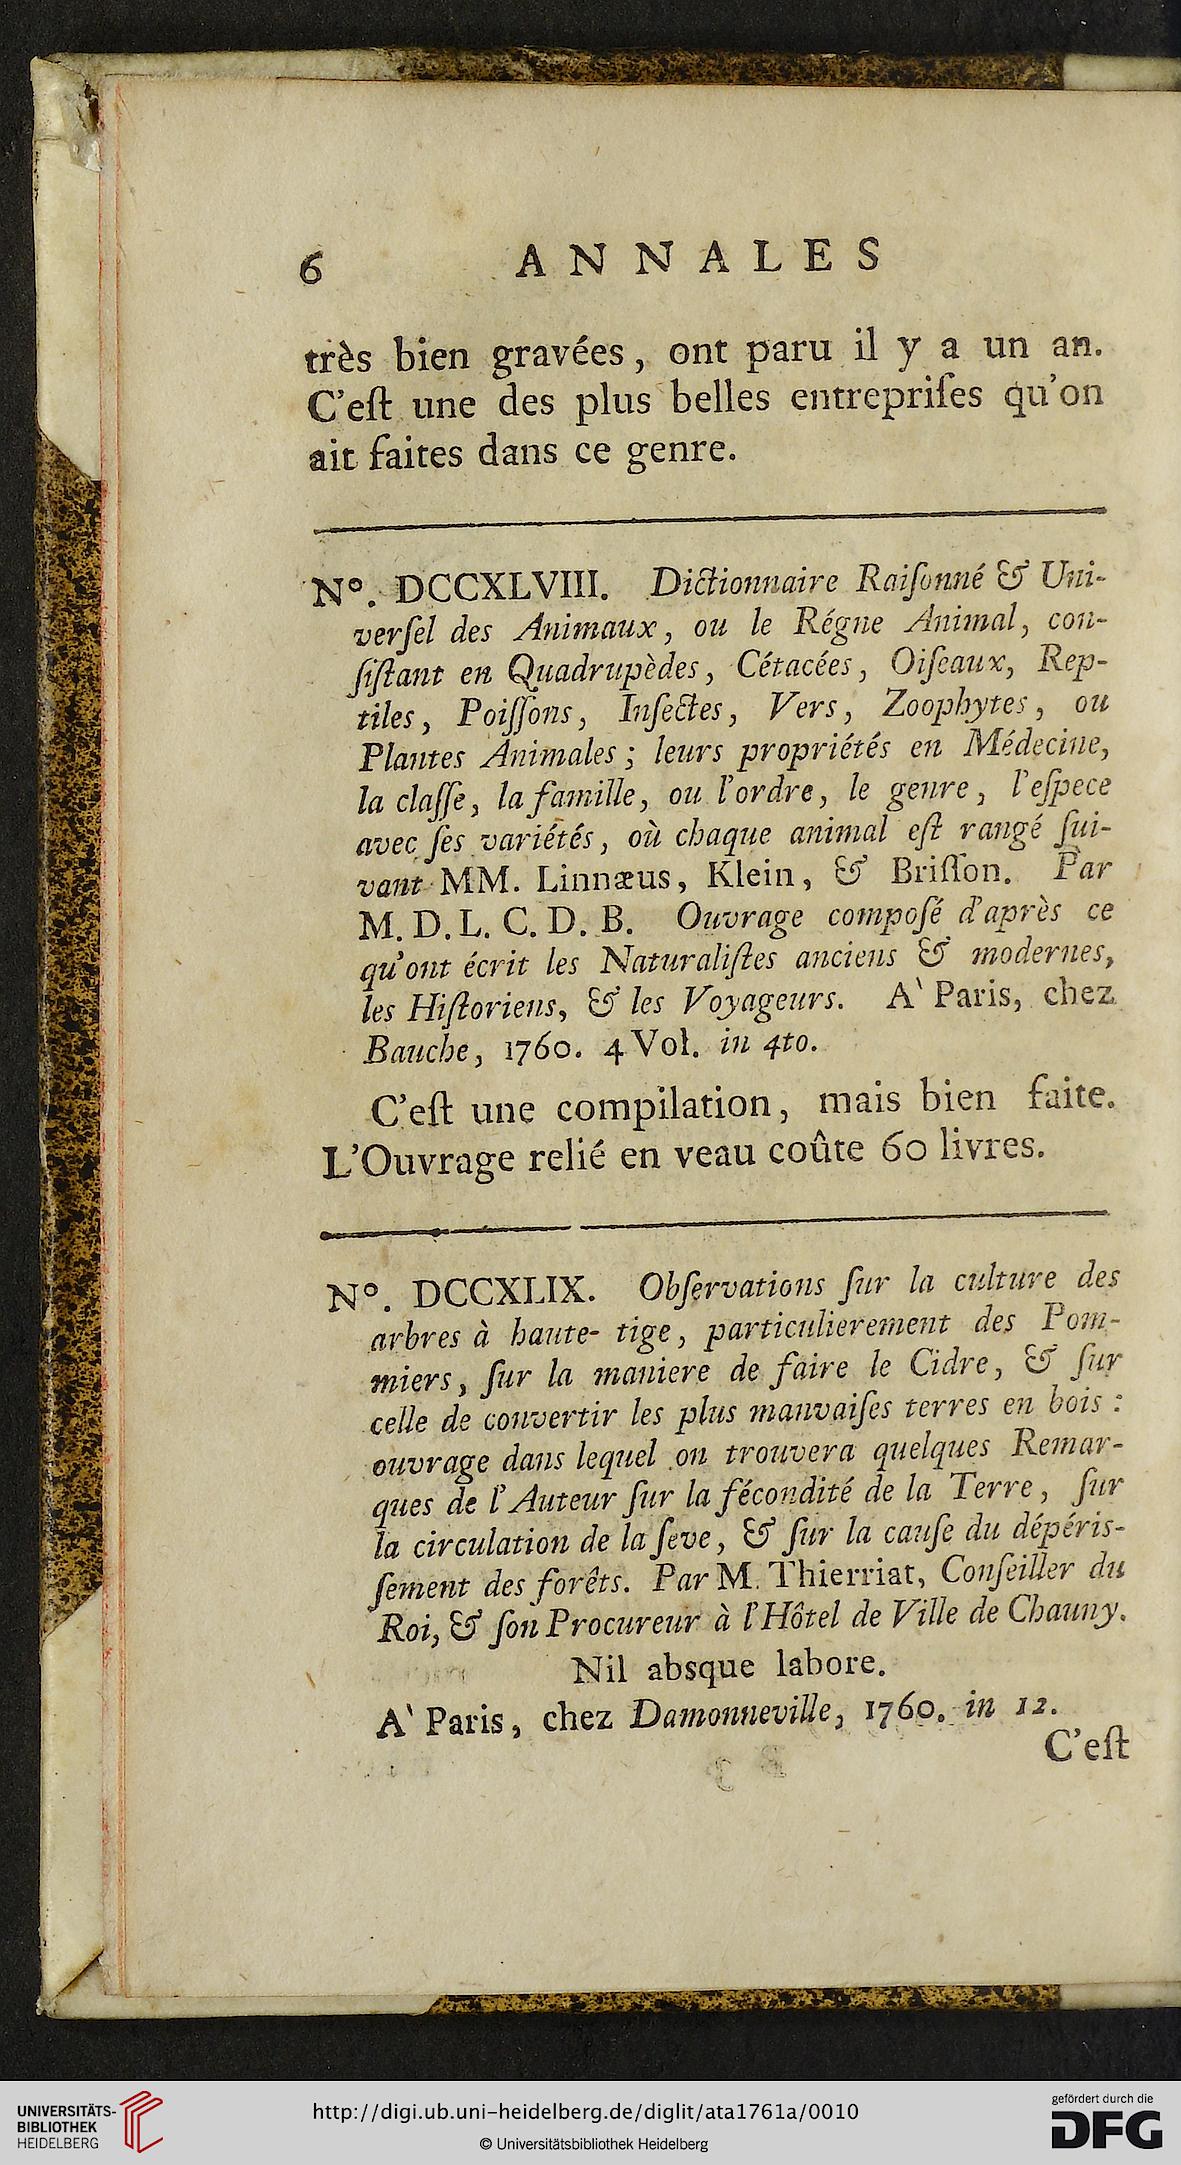 6 ANNALES
très bien gravées, ont paru il y a un an.
C'eſt une des plus belles entrepriſes qu'on
ait faites dans ce genre.
N°. DCCXLVIII. Dictionnaire Raiſonné & Uni-
verſel des Animaux, ou le Régne Animal, con-
ſiſtant en Quadrupèdes, Cétacées, Oiſeaux, Rep-
tiles, Poiſſons, Inſectes, Vers, Zoophytes, ou
Plantes Animales; leurs propriétés en Médecine,
la claſſe, la famille, ou l'ordre, le genre, l'eſpece
avec ſes variétés, où chaque animal eſt rangé ſui-
vant MM. Linnæus, Klein, & Briſſon. Par
M. D. L. C. D. B. Ouvrage compoſé d'après ce
qu'ont écrit les Naturaliſtes anciens & modernes,
les Hiſtoriens, & les Voyageurs. A' Paris, chez
Bauche, 1760. 4 Vol. in 4to.
C'eſt une compilation, mais bien faite.
L'Ouvrage relié en veau coûte 60 livres.
N°. DCCXLIX. Obſervations ſur la culture des
arbres à haute-tige, particulierement des Pom-
miers, ſur la maniere de faire le Cidre, & ſur
celle de convertir les plus mauvaiſes terres en bois:
ouvrage dans lequel on trouvera quelques Remar-
ques de l'Auteur ſur la fécondité de la Terre, ſur
la circulation de la ſeve, & ſur la cauſe du dépéris-
ſement des forêts. Par M. Thierriat, Conſeiller du
Roi, & ſon Procureur à l'Hôtel de Ville de Chauny.
Nil absque labore.
A' Paris, chez Damonneville, 1760. in 12.
C'eſt
UNIVERSITÄTS-
BIBLIOTHEK
HEIDELBERG
http://digi.ub.uni-heidelberg.de/diglit/ata1761a/0010
© Universitätsbibliothek Heidelberg
gefördert durch die
DFG